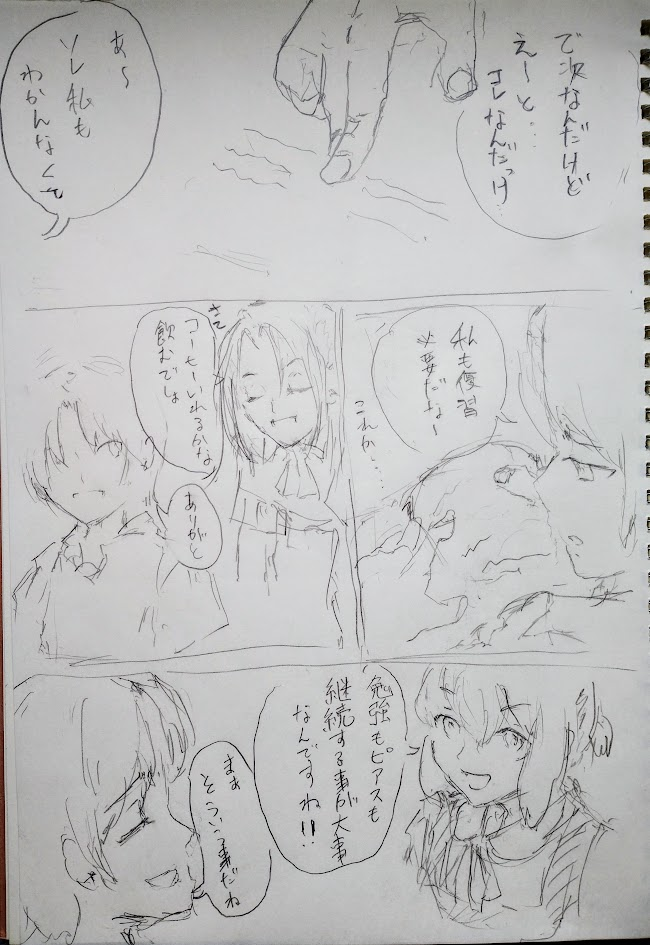 で次なんだけど
えーと…
コレなんだっけ…
あ〜
ソレ私も
わかんなくて
私も復習
必要だなー
これか…
さて
コーヒーいれるかな
飲むでしょ
ありがと
勉強もピアスも
継続する事が大事
なんですね!!
まぁ
そういう事だね